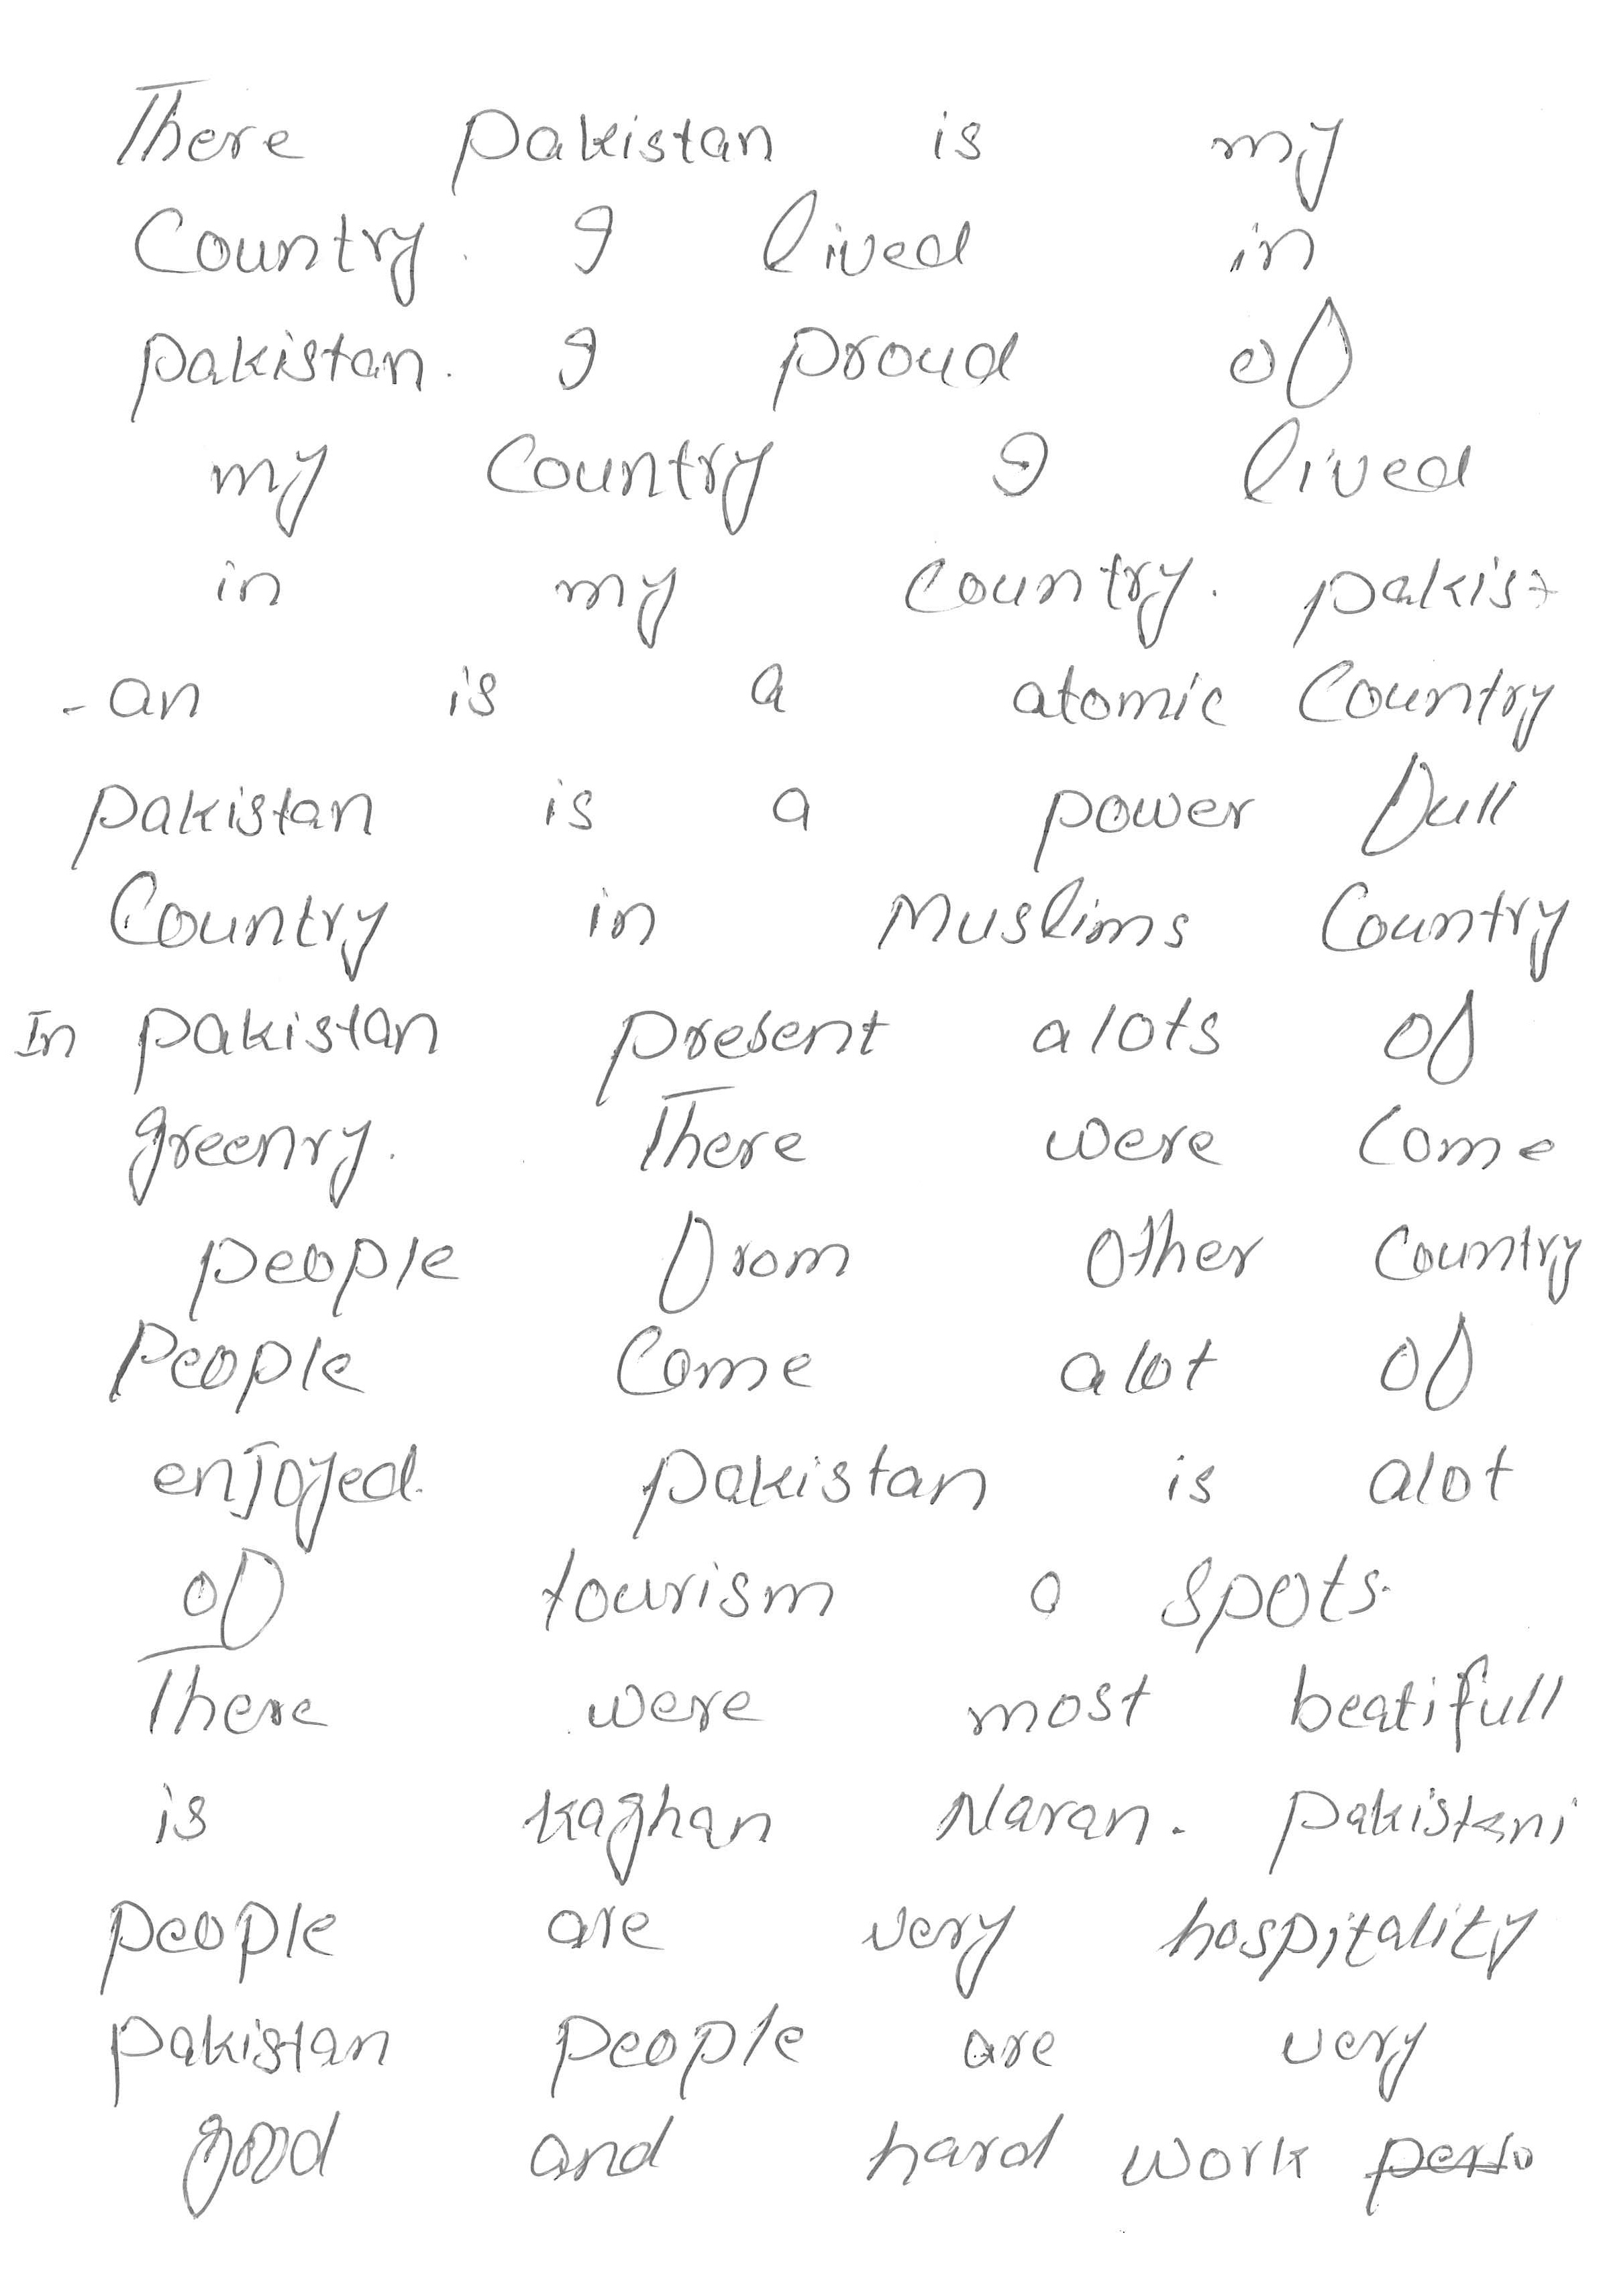 There pakistan is my
Country. I lived in
pakistan. I proud of
my Country I lived
in my country. pakist
-an is a atomic Country
pakistan is a power full
Country in Muslims Country
In pakistan present alots of
greenry. There were Come
people from other Country
People Come alot of
enjoyed. pakistan is alot
of tourism o spots.
There were most beatifull
is kaghan Naran. pakistani
people are very hospitality
pakistan people are very
good and hard work